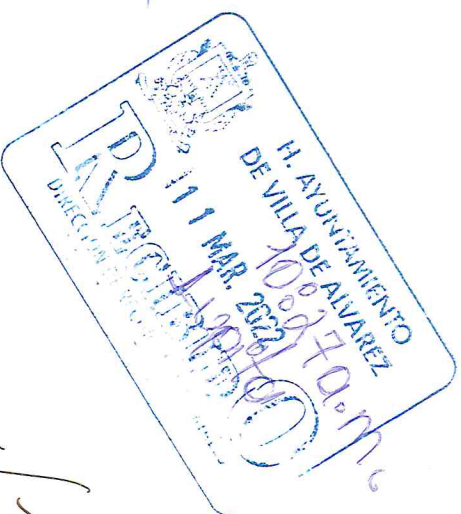 H. AYUNTAMIENTO
DE VILLA DE ALVAREZ
11 MAR. 2022
10:27 a.m.
RECIBIDO
DIRECCION